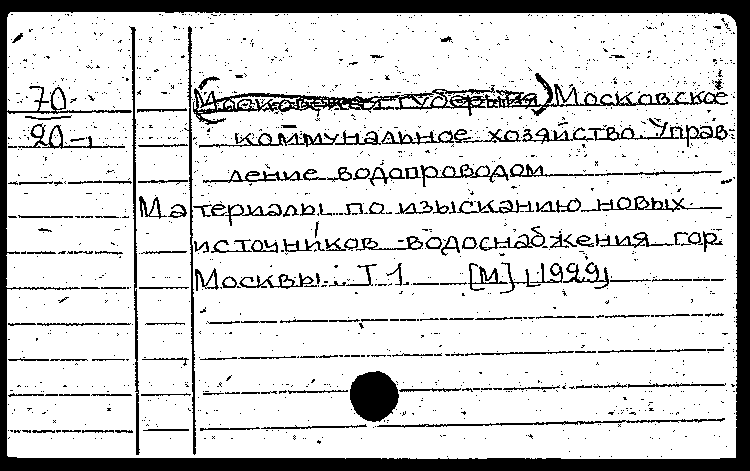 70
20-1
(Московская губерния) Московское
коммунальное хозяйство. Управ-
ление водопроводом
Материалы по изысканию новых
источников водоснабжения гор.
Москвы. Т 1 [М.] [1929]